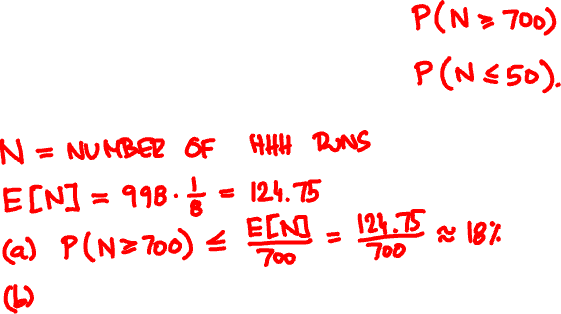 P(N ≥ 700)
P(N ≤ 50).
N = NUMBER OF HHH RUNS
E[N] = 998 · 1/8 = 124.75
(a) P(N ≥ 700) ≤ E[N]/700 = 124.75/700 ≈ 18%
(b)